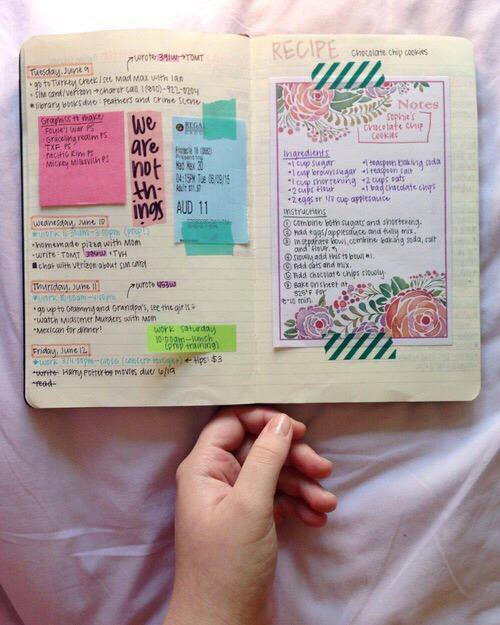 Tuesday, June 9
→ wrote 391w → TOMT
• go to Turkey Creek/see Mad Max with Ian
• sim card/verizon → char or call 1 (800)-922-0204
*library books due: Feathers and Crime Scene
Graphics to make:
Foggy's War PS
Graceling realm PS
TXF PS
Pacific Rim PS
Mickey Milkovich PS
we
are
not
th-
ings
REGAL
Mad Max 3D
04:15PM Tue 06/09/15
AUD 11
Wednesday, June 10
• homemade pizza with Mom
• write: TOMT → TVH
chat with verizon about sim card
Thursday, June 11
→ wrote
• go up to Grammy and Grandpa's, see the girls
• watch Midsomer Murders with Mom
• Mexican for dinner!
work saturday
10:00am-lunch
(prep training)
Friday, June 12
← tips: $3
• write Harry Potter movies due 6/19
• read
RECIPE chocolate chip cookies
Notes
Sophie's
Chocolate Chip
Cookies
Ingredients
• 1 cup sugar
• 1 cup brown sugar
• 1 cup shortening
• 2 cups flour
• 2 eggs or 1/2 cup applesauce
• 1 teaspoon baking soda
• 1 teaspoon salt
• 2 cups oats
• 1 bag chocolate chips
Instructions
① Combine both sugars and shortening.
② Add eggs/applesauce and fully mix.
③ In separate bowl, combine baking soda, salt
and flour.
④ Slowly add this to bowl #1.
⑤ Add oats and mix.
⑥ Add chocolate chips slowly.
⑦ Bake on sheet at
325°F for
8-10 min.